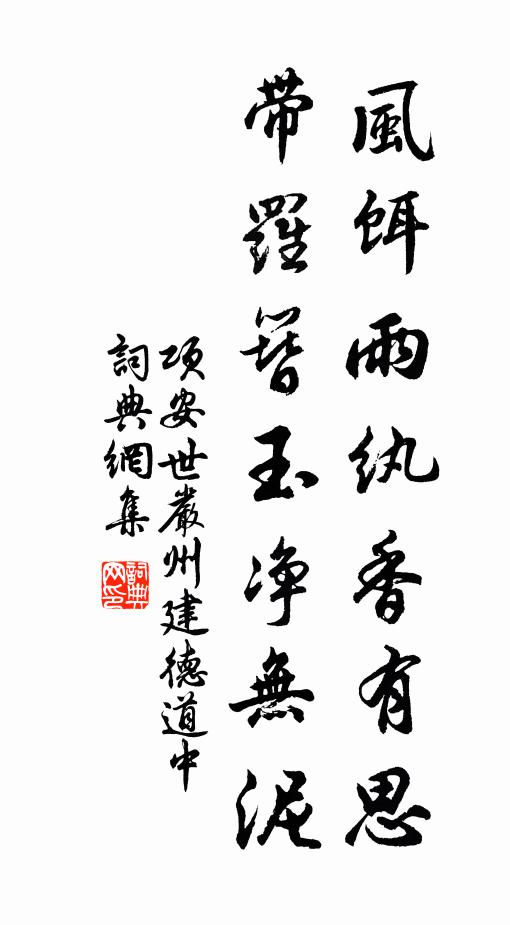 風餌雨紈香有思
帶羅簪玉净無泥
項安世嚴州建德道中
詞典網集
詞典
网印